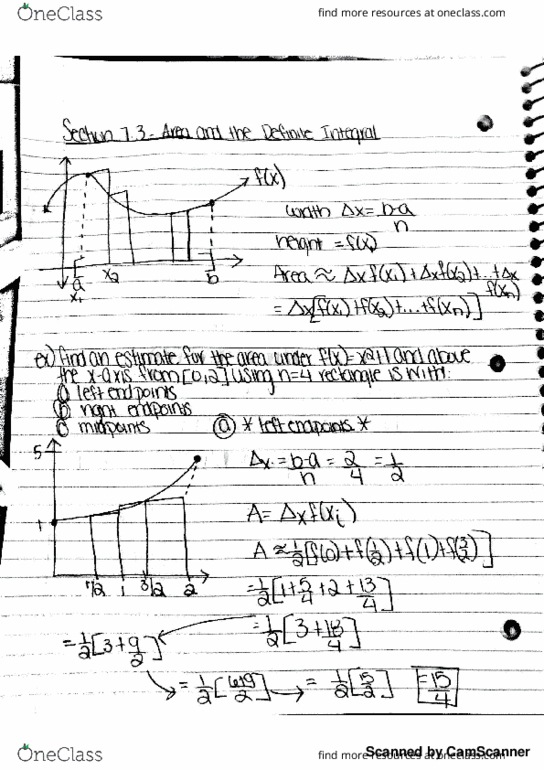 OneClass
find more resources at oneclass.com
Section 7.3 - Area and the Definite Integral
f(x)
width Δx = b-a/n
height = f(x)
a x₂ b
x₁
Area ≈ Δx f(x₁) + Δx f(x₂) + ... + Δx f(xₙ)
= Δx[f(x₁) + f(x₂) + ... + f(xₙ)]
ex) find an estimate for the area under f(x) = x²+1 and above
the x-axis from [0,2] using n=4 rectangle is with:
a left endpoints
b right endpoints
c midpoints
a * left endpoints *
5
1
1/2 1 3/2 2
Δx = b-a/n = 2/4 = 1/2
A = Δx f(xᵢ)
A ≈ 1/2[f(0) + f(1/2) + f(1) + f(3/2)]
= 1/2[1 + 5/4 + 2 + 13/4]
= 1/2[3 + 18/4]
= 1/2[3 + 9/2]
= 1/2[6+9/2] = 1/2[15/2] = 15/4
Scanned by CamScanner
OneClass
find more resources at oneclass.com